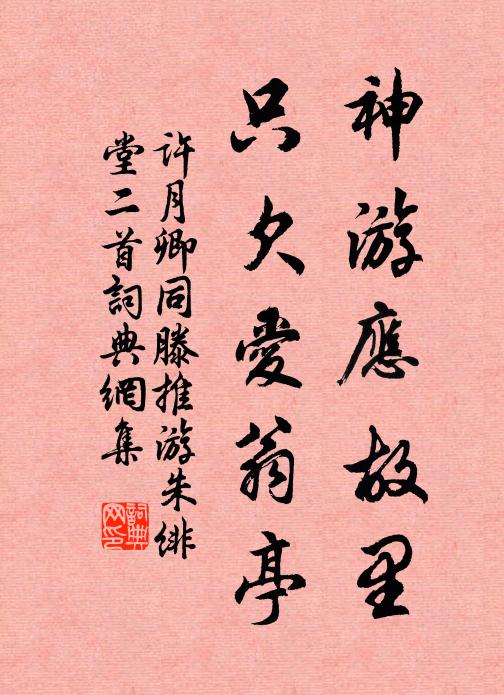 神游應故里
只欠愛翁亭
許月卿同滕推游朱緋
堂二首詞典網集
詞典
网印